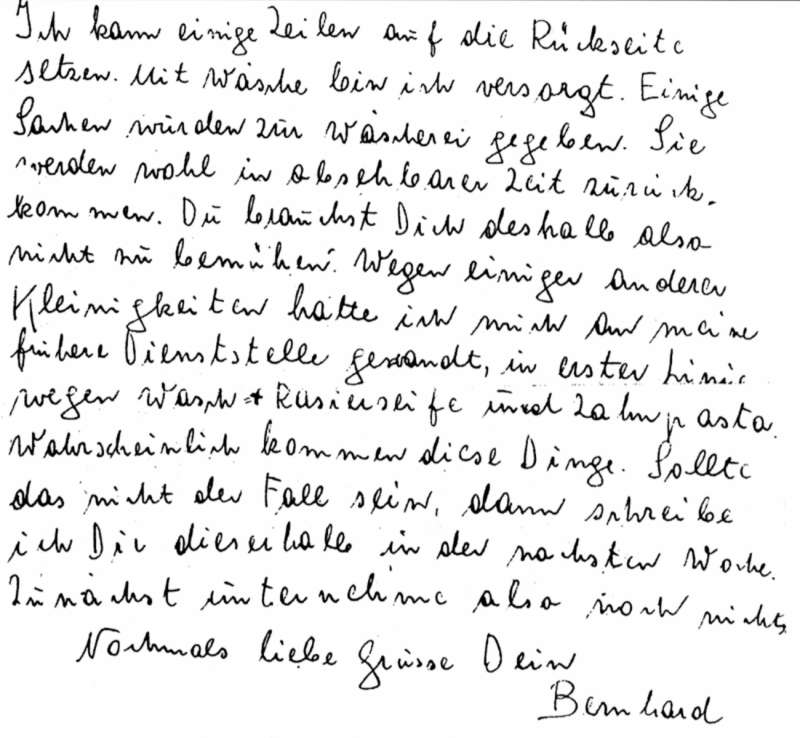 Ich kann einige Zeilen auf die Rückseite
setzen. Mit Wäsche bin ich versorgt. Einige
Sachen würden zur Wäscherei gegeben. Sie
werden wohl in absehbarer Zeit zurück-
kommen. Du brauchst Dich deshalb also
nicht zu bemühen. Wegen einiger anderer
Kleinigkeiten hatte ich mich an meine
frühere Dienststelle gewandt, in erster Linie
wegen Wasch + Rasierseife und Zahnpasta.
Wahrscheinlich kommen diese Dinge. Sollte
das nicht der Fall sein, dann schreibe
ich Dir dieserhalb in der nächsten Woche.
Zunächst unternehme also noch nichts
Nochmals liebe Grüsse Dein
Bernhard